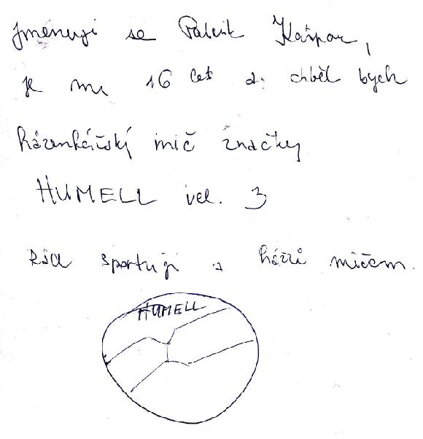 Jmenuji se Patrik Kašpar,
je mi 16 let a chtěl bych
házenkářský míč značky
HUMELL vel. 3
Rád sportuji a házím míčem.
HUMELL